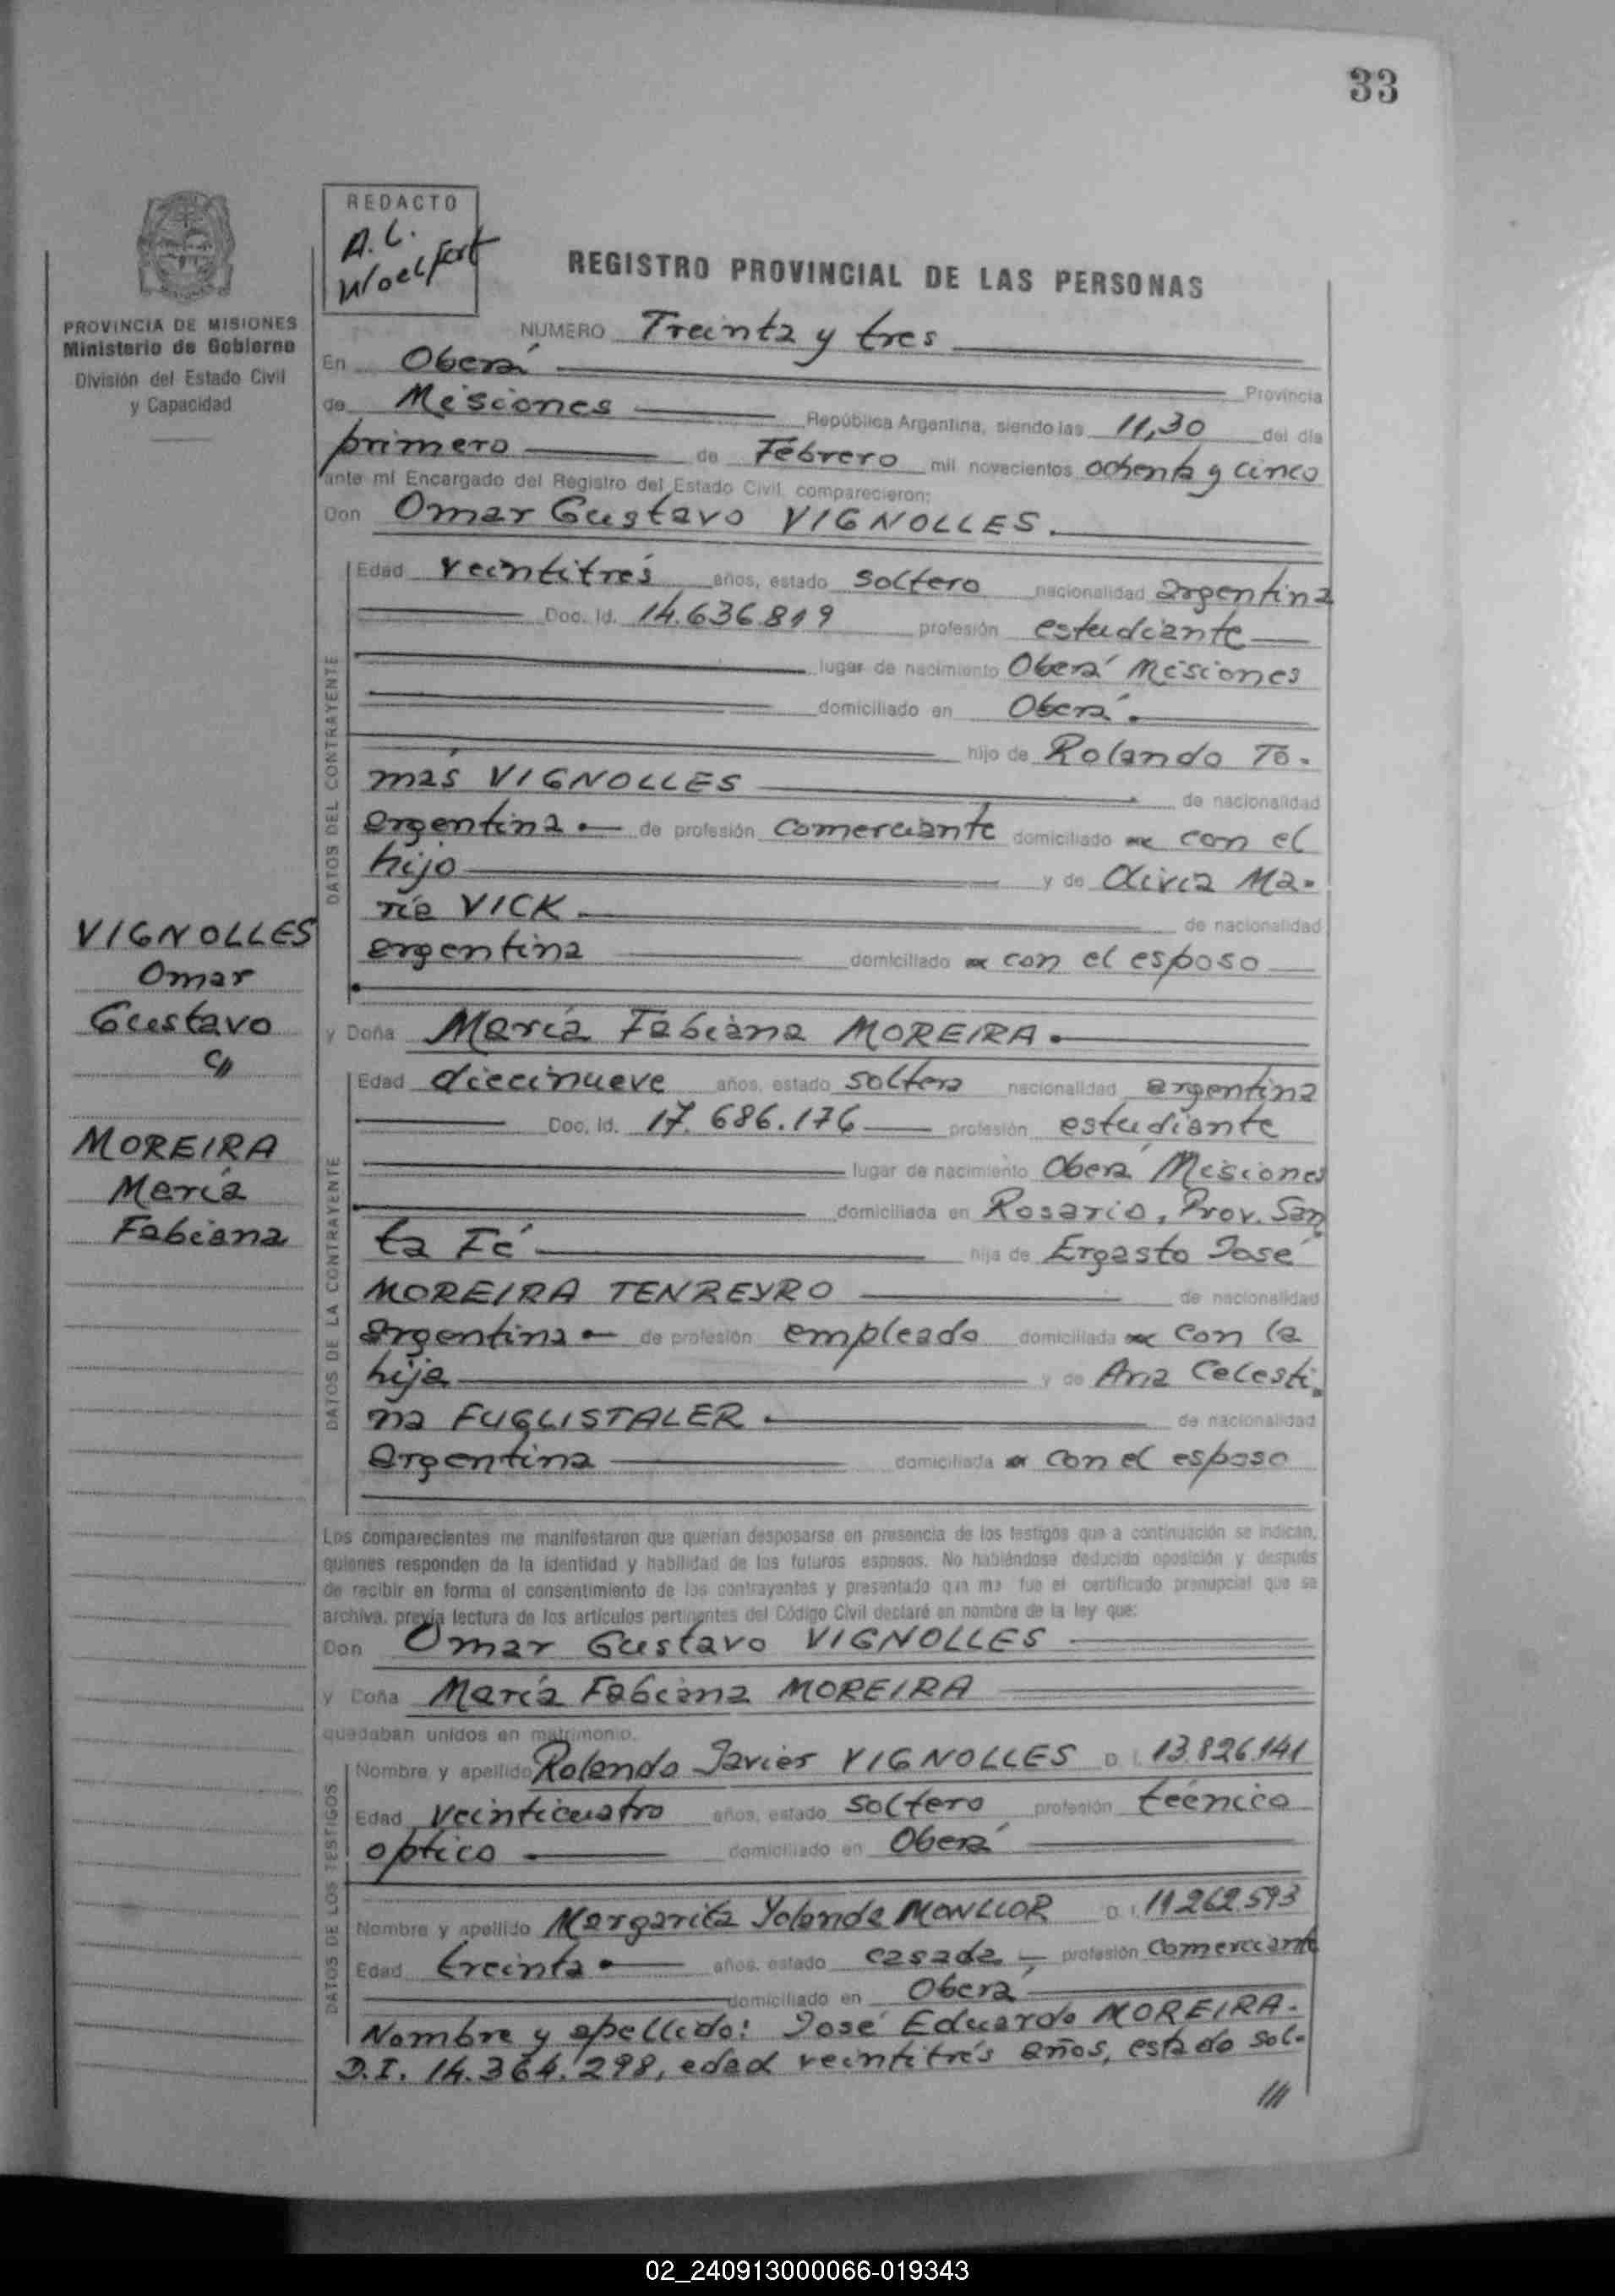 33
REDACTO
A. C.
Woelfert
REGISTRO PROVINCIAL DE LAS PERSONAS
PROVINCIA DE MISIONES
Ministerio de Gobierno
División del Estado Civil
y Capacidad
NUMERO Treinta y tres
En Oberá Provincia
de Misiones República Argentina, siendo las 11,30 del día
primero de Febrero mil novecientos ochenta y cinco
ante mí Encargado del Registro del Estado Civil, comparecieron:
Don Omar Gustavo VIGNOLLES.
DATOS DEL CONTRAYENTE
Edad veintitrés años, estado soltero nacionalidad argentina
Doc. Id. 14.636.819 profesión estudiante
lugar de nacimiento Oberá Misiones
domiciliado en Oberá.
hijo de Rolando To-
más VIGNOLLES de nacionalidad
argentina.- de profesión comerciante domiciliado con el
hijo y de Olivia Ma-
ría VICK. de nacionalidad
argentina domiciliado con el esposo
VIGNOLLES
Omar
Gustavo
c//
MOREIRA
María
Fabiana
y Doña María Fabiana MOREIRA.
DATOS DE LA CONTRAYENTE
Edad diecinueve años, estado soltera nacionalidad argentina
Doc. Id. 17.686.176 profesión estudiante
lugar de nacimiento Oberá Misiones
domiciliada en Rosario, Prov. San
ta Fé hija de Ergasto José
MOREIRA TENREYRO de nacionalidad
argentina.- de profesión empleado domiciliada con la
hija y de Ana Celesti-
na FUGLISTALER. de nacionalidad
argentina domiciliada con el esposo
Los comparecientes me manifestaron que querían desposarse en presencia de los testigos que a continuación se indican,
quienes responden de la identidad y habilidad de los futuros esposos. No habiéndose deducido oposición y después
de recibir en forma el consentimiento de los contrayentes y presentado que me fue el certificado prenupcial que se
archiva, previa lectura de los artículos pertinentes del Código Civil declaré en nombre de la ley que:
Don Omar Gustavo VIGNOLLES
y Doña María Fabiana MOREIRA
quedaban unidos en matrimonio.
DATOS DE LOS TESTIGOS
Nombre y apellido Rolando Javier VIGNOLLES D. I. 13.826.141
Edad veinticuatro años, estado soltero profesión técnico
optico domiciliado en Oberá
Nombre y apellido Margarita Yolanda MONLLOR D. I. 11.262.593
Edad treinta.- años, estado casada profesión comerciante
domiciliado en Oberá
Nombre y apellido: José Eduardo MOREIRA.-
D.I. 14.364.298, edad veintitrés años, estado sol-
///
02_240913000066-019343